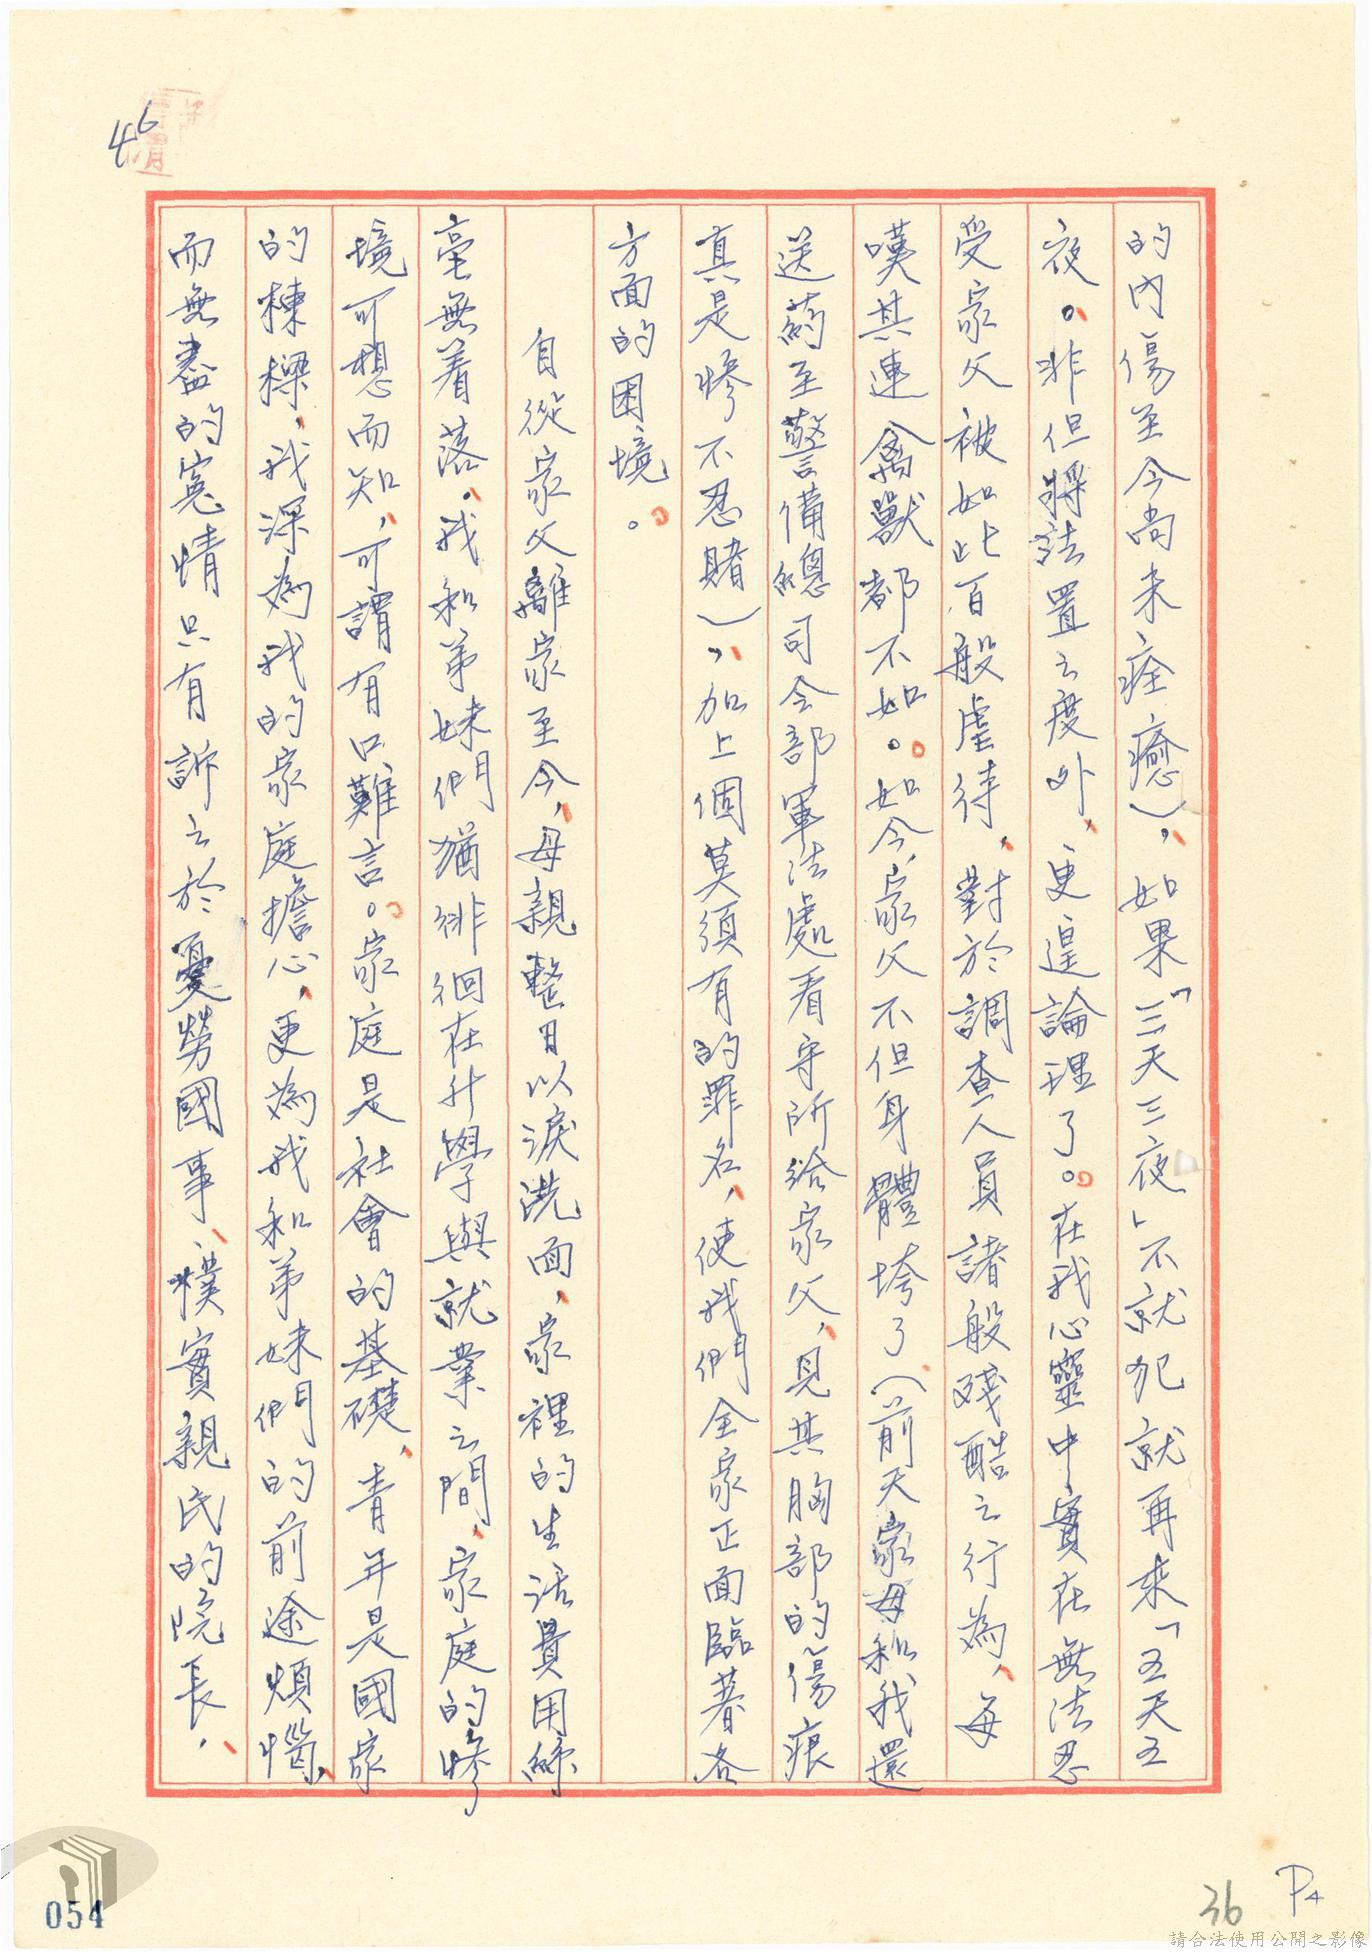 46
的內傷至今尚未痊癒），如果「三天三夜」不就犯就再來「五天五
夜。非但將法置之度外，更遑論理了。在我心靈中實在無法忍
受家父被如此百般虐待，對於調查人員諸般殘酷之行為，每
嘆其連禽獸都不如。如今，家父不但身體垮了（前天家母和我還
送葯至警備總司令部軍法處看守所給家父，見其胸部的傷痕
真是慘不忍賭），加上個莫須有的罪名，使我們全家正面臨著各
方面的困境。
自從家父離家至今，母親整日以淚洗面，家裡的生活費用絲
毫無着落。我和弟妹們猶徘徊在升學與就業之間，家庭的慘
境可想而知，可謂有口難言。家庭是社會的基礎，青年是國家
的棟樑，我深為我的家庭擔心，更為我和弟妹們的前途煩惱，
而無盡的寃情只有訴之於憂勞國事、樸實親民的院長，
054
36
P4
請合法使用公開之影像